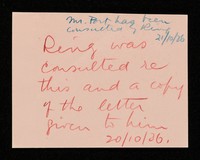 Mr. Fort has been
consulted by Ring
21/10/26
Ring was
consulted re
this and a copy
of the letter
given to him
20/10/26.